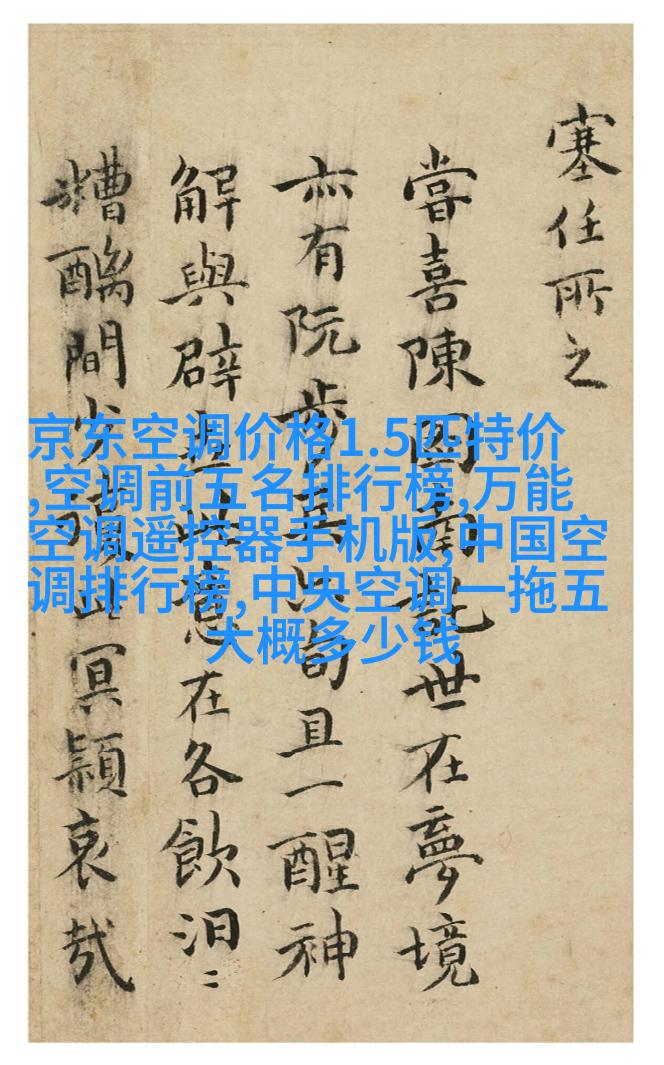 塞任所之
嘗喜陳世在夢境
亦有阮步且一醒神
解與辟意在各飲汩〻
糟醨間少此冥穎哀哉
京东空调价格1.5匹特价
,空调前五名排行榜,万能
空调遥控器手机版,中国空
调排行榜,中央空调一拖五
大概多少钱